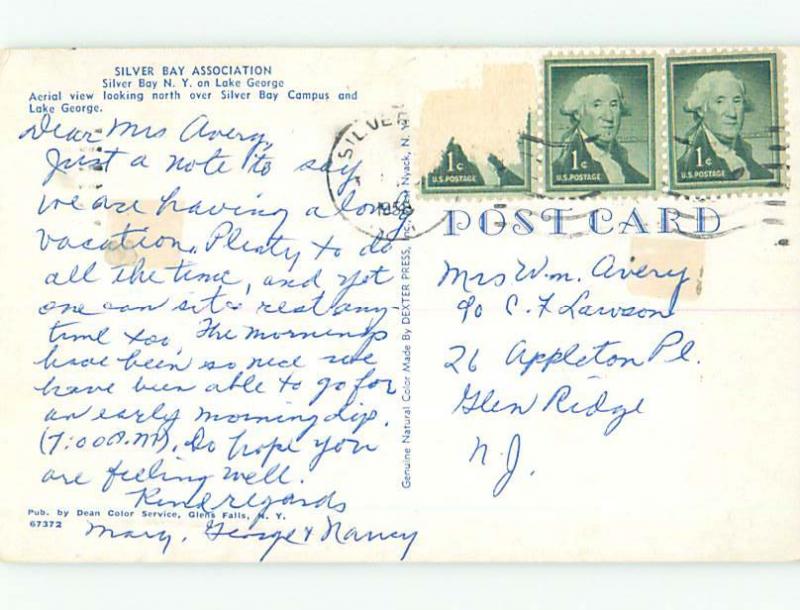 SILVER BAY ASSOCIATION
Silver Bay N. Y. on Lake George
Aerial view looking north over Silver Bay Campus and
Lake George.
Dear Mrs Avery,
Just a note to say
we are having a long
vacation. Plenty to do
all the time, and yet
one can sit & rest any-
time too. The mornings
have been so nice we
have been able to go for
an early morning dip.
(7:00 A.M). Do hope you
are feeling well.
Kind regards
Mary, George & Nancy
Pub. by Dean Color Service, Glens Falls, N. Y.
67372
Genuine Natural Color Made By DEXTER PRESS, Inc. Nyack, N. Y.
SILVER
1958
1¢
U.S. POSTAGE
1¢
U.S. POSTAGE
1¢
U.S. POSTAGE
POST CARD
Mrs Wm. Avery
c/o C. F Lawson
26 Appleton Pl.
Glen Ridge
N. J.